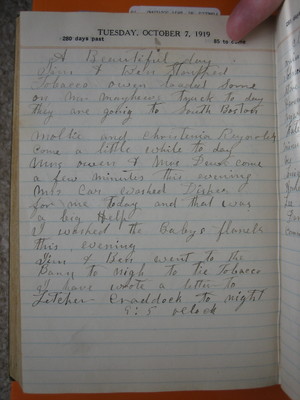 TUESDAY, OCTOBER 7, 1919
280 days past
85 to come
A Beautiful day
Jim & Bess
Tobacco owen some
on Mr truck to day
they are going to South Boston
Mollie and Reynolds
come a little while to day
owen & come
a few minutes this evening
Mrs Car washed Dishes
for me today and that was
a big Help
I washed the babys flanels
this evening
Jim & Bess went to the
Barn to nigh to tie Tobacco
I have wrote a letter to
Letcher Craddock to night
9:5 oclock